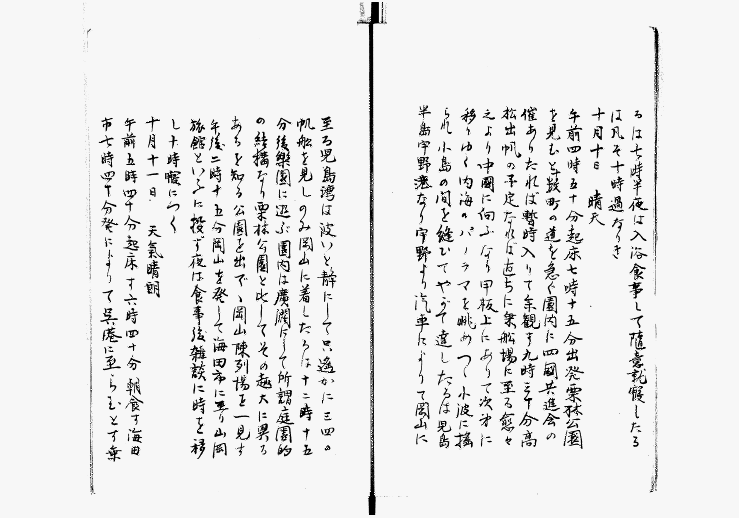 るは七時半夜は入浴食事して随意就寝したる
は凡そ十時過なりき
十月十日 晴天
午前四時五十分起床七時十五分出発栗林公園
を見むと数町の道を急ぐ園内に四國共進会の
催ありたれば暫時入りて参観す九時三十分高
松出帆の予定なれば直ちに乗船場に至る愈々
之より中國に向ふなり甲板上にありて次才に
移りゆく内海のパノラマを眺めつゝ小波に揺
られ小島の間を縫むてやがて達したるは児島
半島宇野港なり宇野より汽車によりて岡山に
至る児島湾は波いと静にして只遙かに三四の
帆船を見しのみ岡山に着したるは十二時十五
分後樂園に遊ぶ園内は廣濶にして所謂庭園的
の結構なり栗林公園と比してその趣大に異る
あるを知る公園を出でゝ岡山陳列場を一見す
午後二時十五分岡山を発して海田市に至り山岡
旅館といふに投ず夜は食事後雑談に時を移
し十時寝につく
十月十一日 天氣晴朗
午前五時四十分起床す六時四十分朝食す海田
市七時四十分発によりて呉港に至らむとす乗